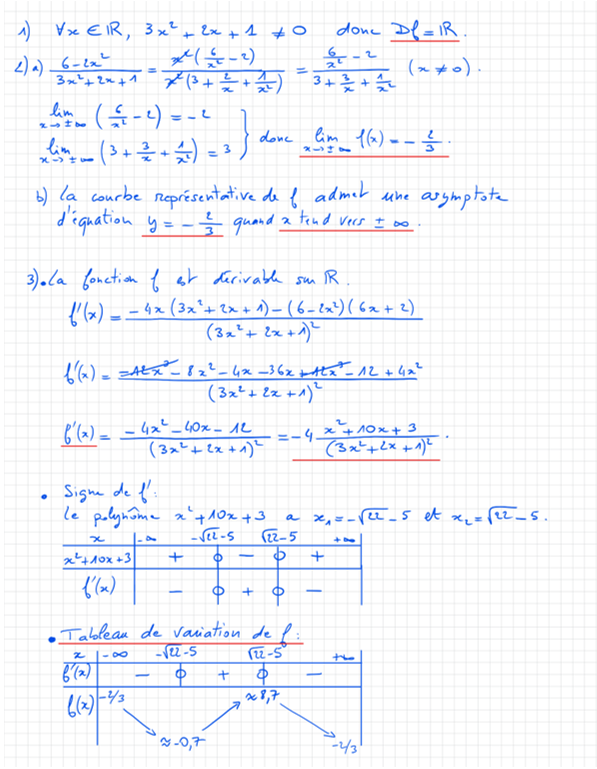 1) ∀x ∈ IR, 3x² + 2x + 1 ≠ 0 donc Df = IR.
2) a) (6-2x²)/(3x²+2x+1) = (x²(6/x² - 2))/(x²(3 + 2/x + 1/x²)) = (6/x² - 2)/(3 + 3/x + 1/x²) (x ≠ 0).
lim x→±∞ (6/x² - 2) = -2
lim x→±∞ (3 + 3/x + 1/x²) = 3 } donc lim x→±∞ f(x) = -2/3.
b) La courbe représentative de f admet une asymptote
d'équation y = -2/3 quand x tend vers ±∞.
3). La fonction f est dérivable sur IR.
f'(x) = (-4x(3x²+2x+1) - (6-2x²)(6x+2))/(3x²+2x+1)²
f'(x) = (-12x³ - 8x² - 4x - 36x + 12x³ - 12 + 4x²)/(3x²+2x+1)²
f'(x) = (-4x² - 40x - 12)/(3x²+2x+1)² = -4 (x²+10x+3)/(3x²+2x+1)².
• Signe de f':
Le polynôme x²+10x+3 a x₁=-√22-5 et x₂=√22-5.
x -∞ -√22-5 √22-5 +∞
x²+10x+3 + 0 - 0 +
f'(x) - 0 + 0 -
• Tableau de variation de f:
x -∞ -√22-5 √22-5 +∞
f'(x) - 0 + 0 -
f(x) -2/3 ≈8,7
≈-0,7 -2/3